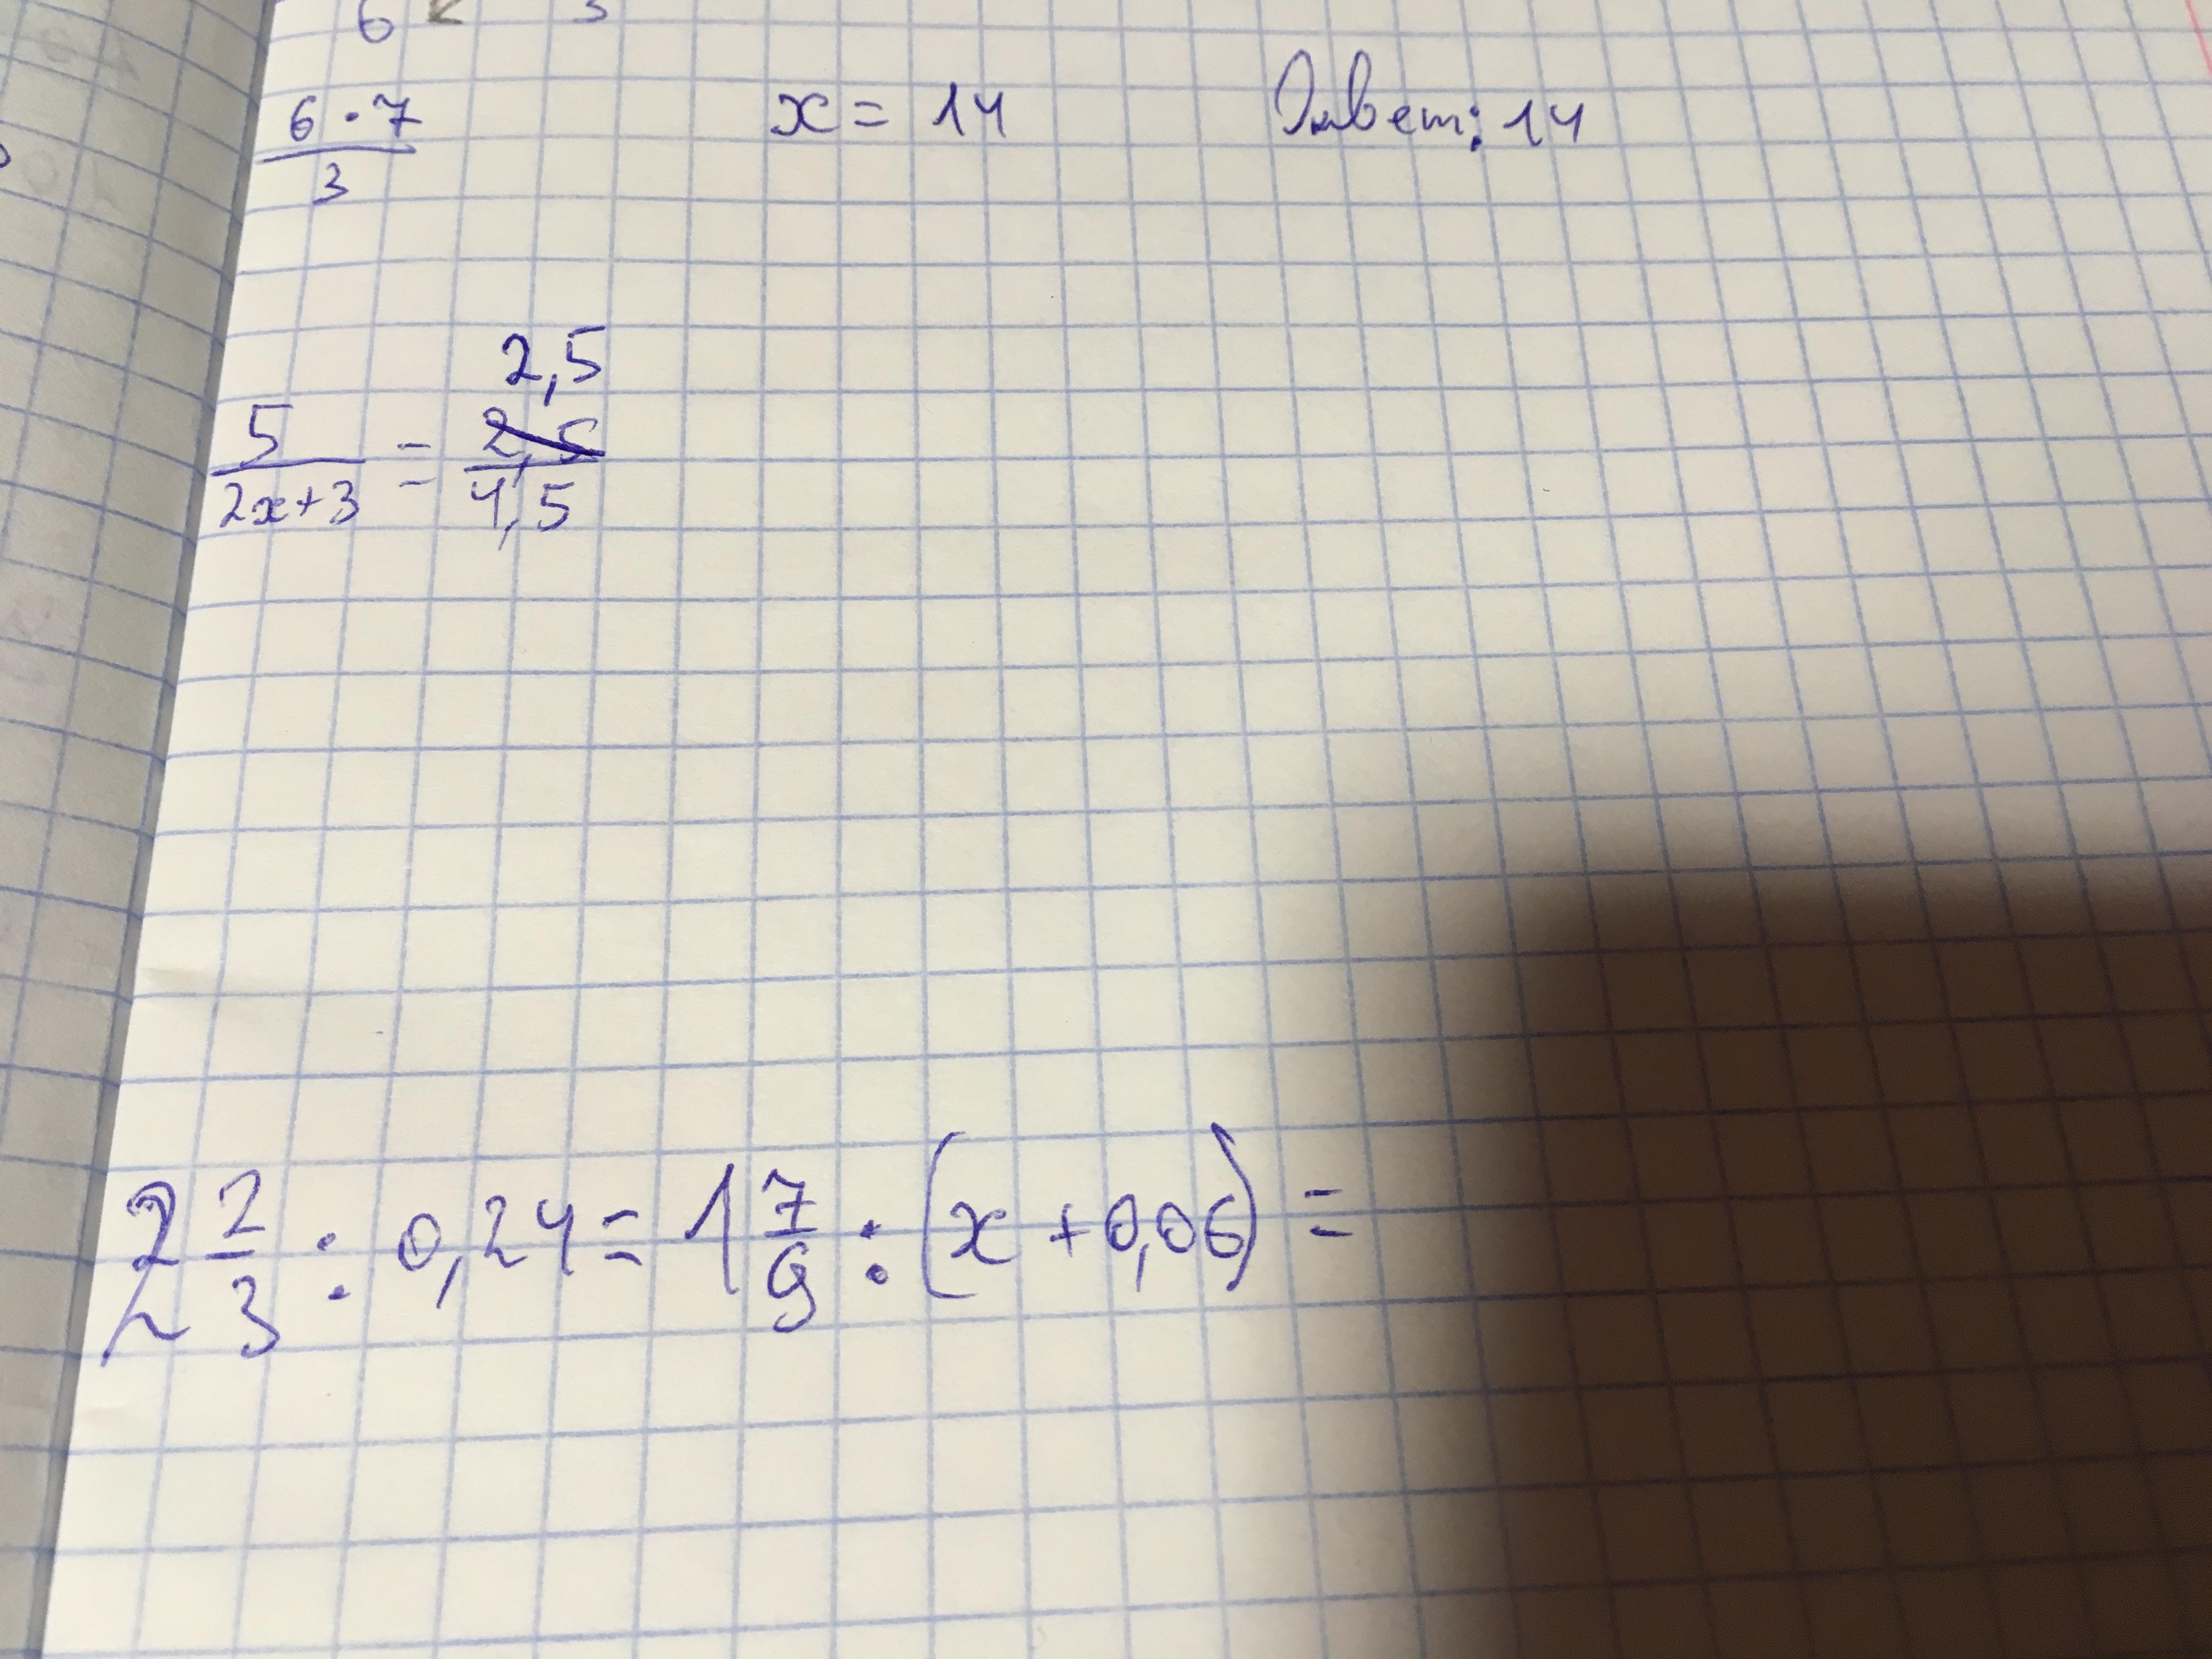 6·7/3 x = 14 Ответ: 14
2,5
5/(2x+3) = 2,5/4,5
2 2/3 : 0,24 = 1 7/9 : (x + 0,06) =